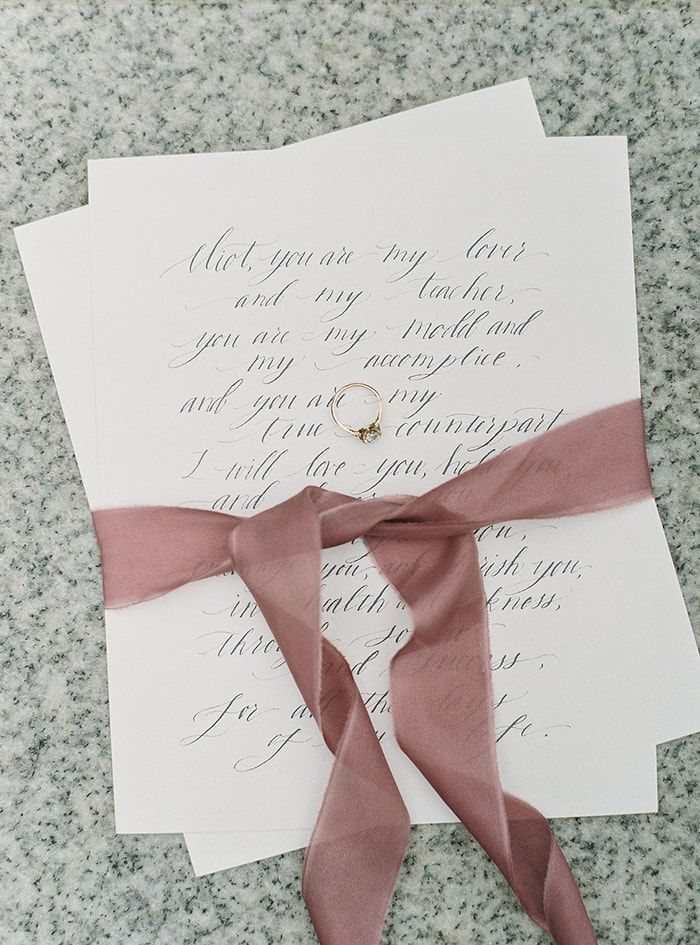 Eliot, you are my lover
and my teacher,
you are my model and
my accomplice,
and you are my
true counterpart.
I will love you, hold you
and
you,
you, cherish you,
in health and sickness,
through
and success,
for all the days
of my life.